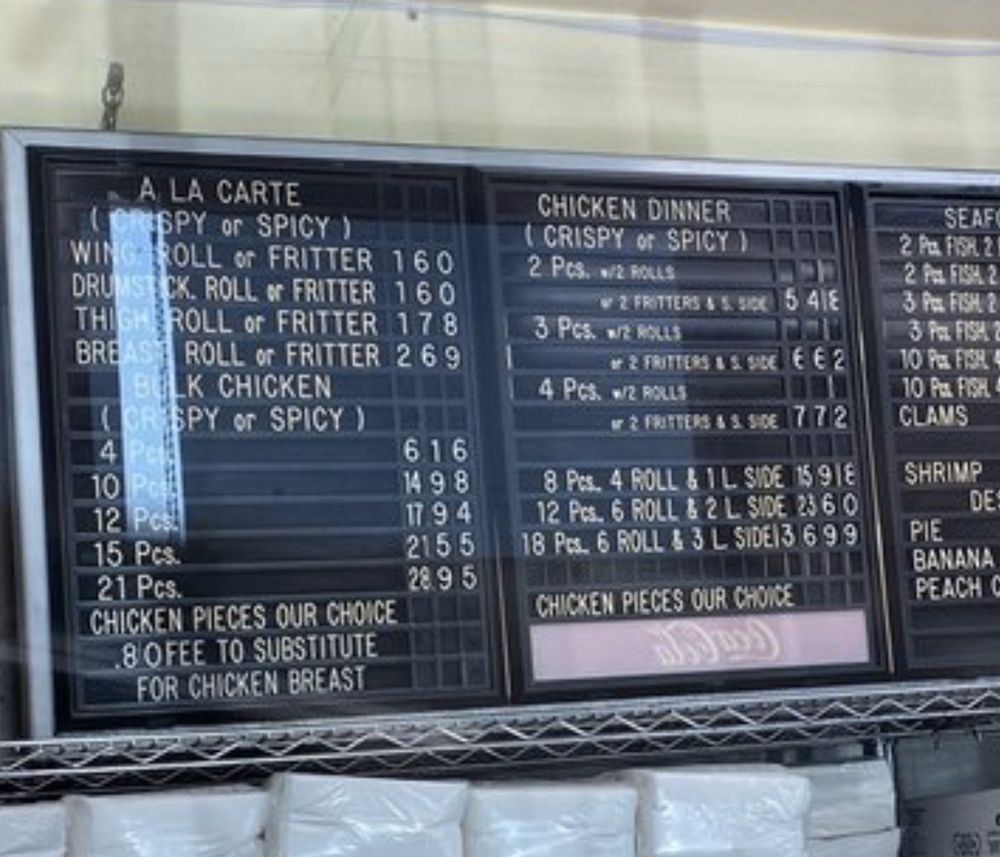 A LA CARTE
( CRISPY or SPICY )
WING. ROLL or FRITTER 160
DRUMSTICK. ROLL or FRITTER 160
THIGH. ROLL or FRITTER 178
BREAST. ROLL or FRITTER 269
BULK CHICKEN
( CRISPY or SPICY )
4 Pcs. 616
10 Pcs. 1498
12 Pcs. 1794
15 Pcs. 2155
21 Pcs. 2895
CHICKEN PIECES OUR CHOICE
.80 FEE TO SUBSTITUTE
FOR CHICKEN BREAST
CHICKEN DINNER
( CRISPY or SPICY )
2 Pcs. w/2 ROLLS
or 2 FRITTERS & S. SIDE 548
3 Pcs. w/2 ROLLS
or 2 FRITTERS & S. SIDE 662
4 Pcs. w/2 ROLLS
or 2 FRITTERS & S. SIDE 772
8 Pcs. 4 ROLL & 1 L. SIDE
12 Pcs. 6 ROLL & 2 L. SIDE 2360
18 Pcs. 6 ROLL & 3 L. SIDE 3699
CHICKEN PIECES OUR CHOICE
Coca-Cola
2 Pcs. FISH. 2
2 Pcs. FISH. 2
3 Pcs. FISH. 2
3 Pcs. FISH.
10 Pcs. FISH.
10 Pcs. FISH.
CLAMS
SHRIMP
PIE
BANANA
PEACH